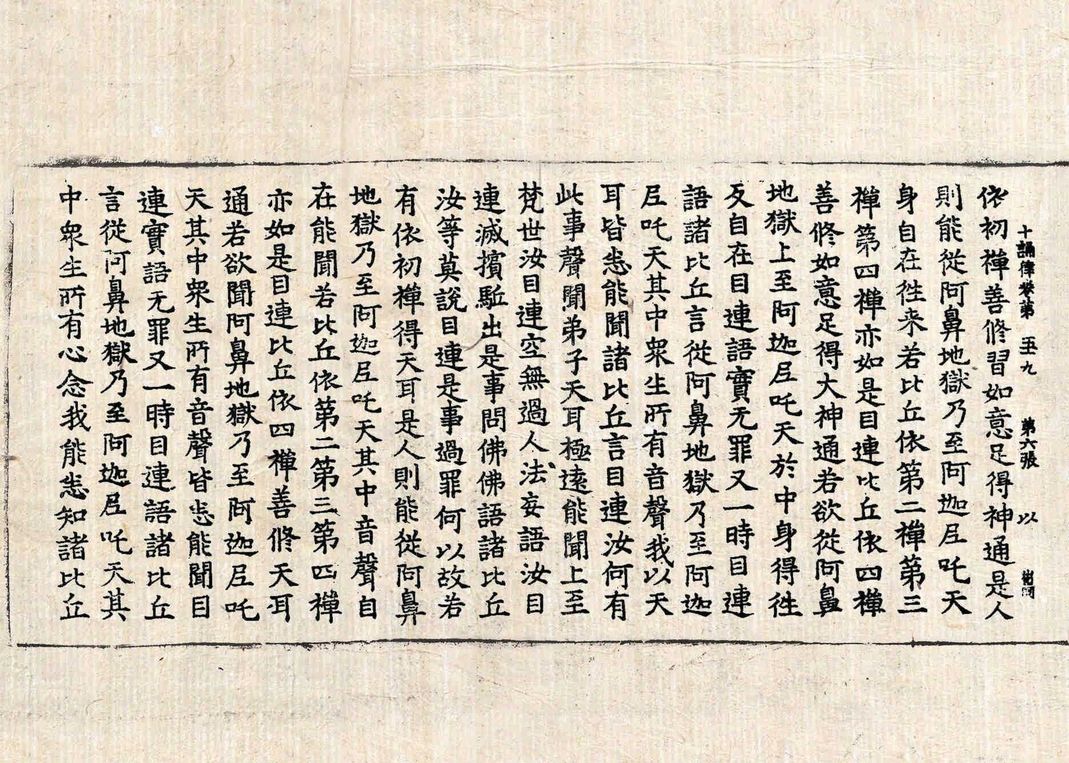 十誦律卷第五九 第六張 以
依初禪善修習如意足得神通是人
則能從阿鼻地獄乃至阿迦尼吒天
身自在徃来若比丘依第二禪第三
禪第四禪亦如是目連比丘依四禪
善修如意足得大神通若欲從阿鼻
地獄上至阿迦尼吒天於中身得徃
反自在目連語實无罪又一時目連
語諸比丘言從阿鼻地獄乃至阿迦
尼吒天其中衆生所有音聲我以天
耳皆悉能聞諸比丘言目連汝何有
此事聲聞弟子天耳極遠能聞上至
梵世汝目連空無過人法妄語汝目
連滅擯駈出是事問佛佛語諸比丘
汝等莫說目連是事過罪何以故若
有依初禪得天耳是人則能從阿鼻
地獄乃至阿迦尼吒天其中音聲自
在能聞若比丘依第二第三第四禪
亦如是目連比丘依四禪善修天耳
通若欲聞阿鼻地獄乃至阿迦尼吒
天其中衆生所有音聲皆悉能聞目
連實語无罪又一時目連語諸比丘
言從阿鼻地獄乃至阿迦尼吒天其
中衆生所有心念我能悉知諸比丘